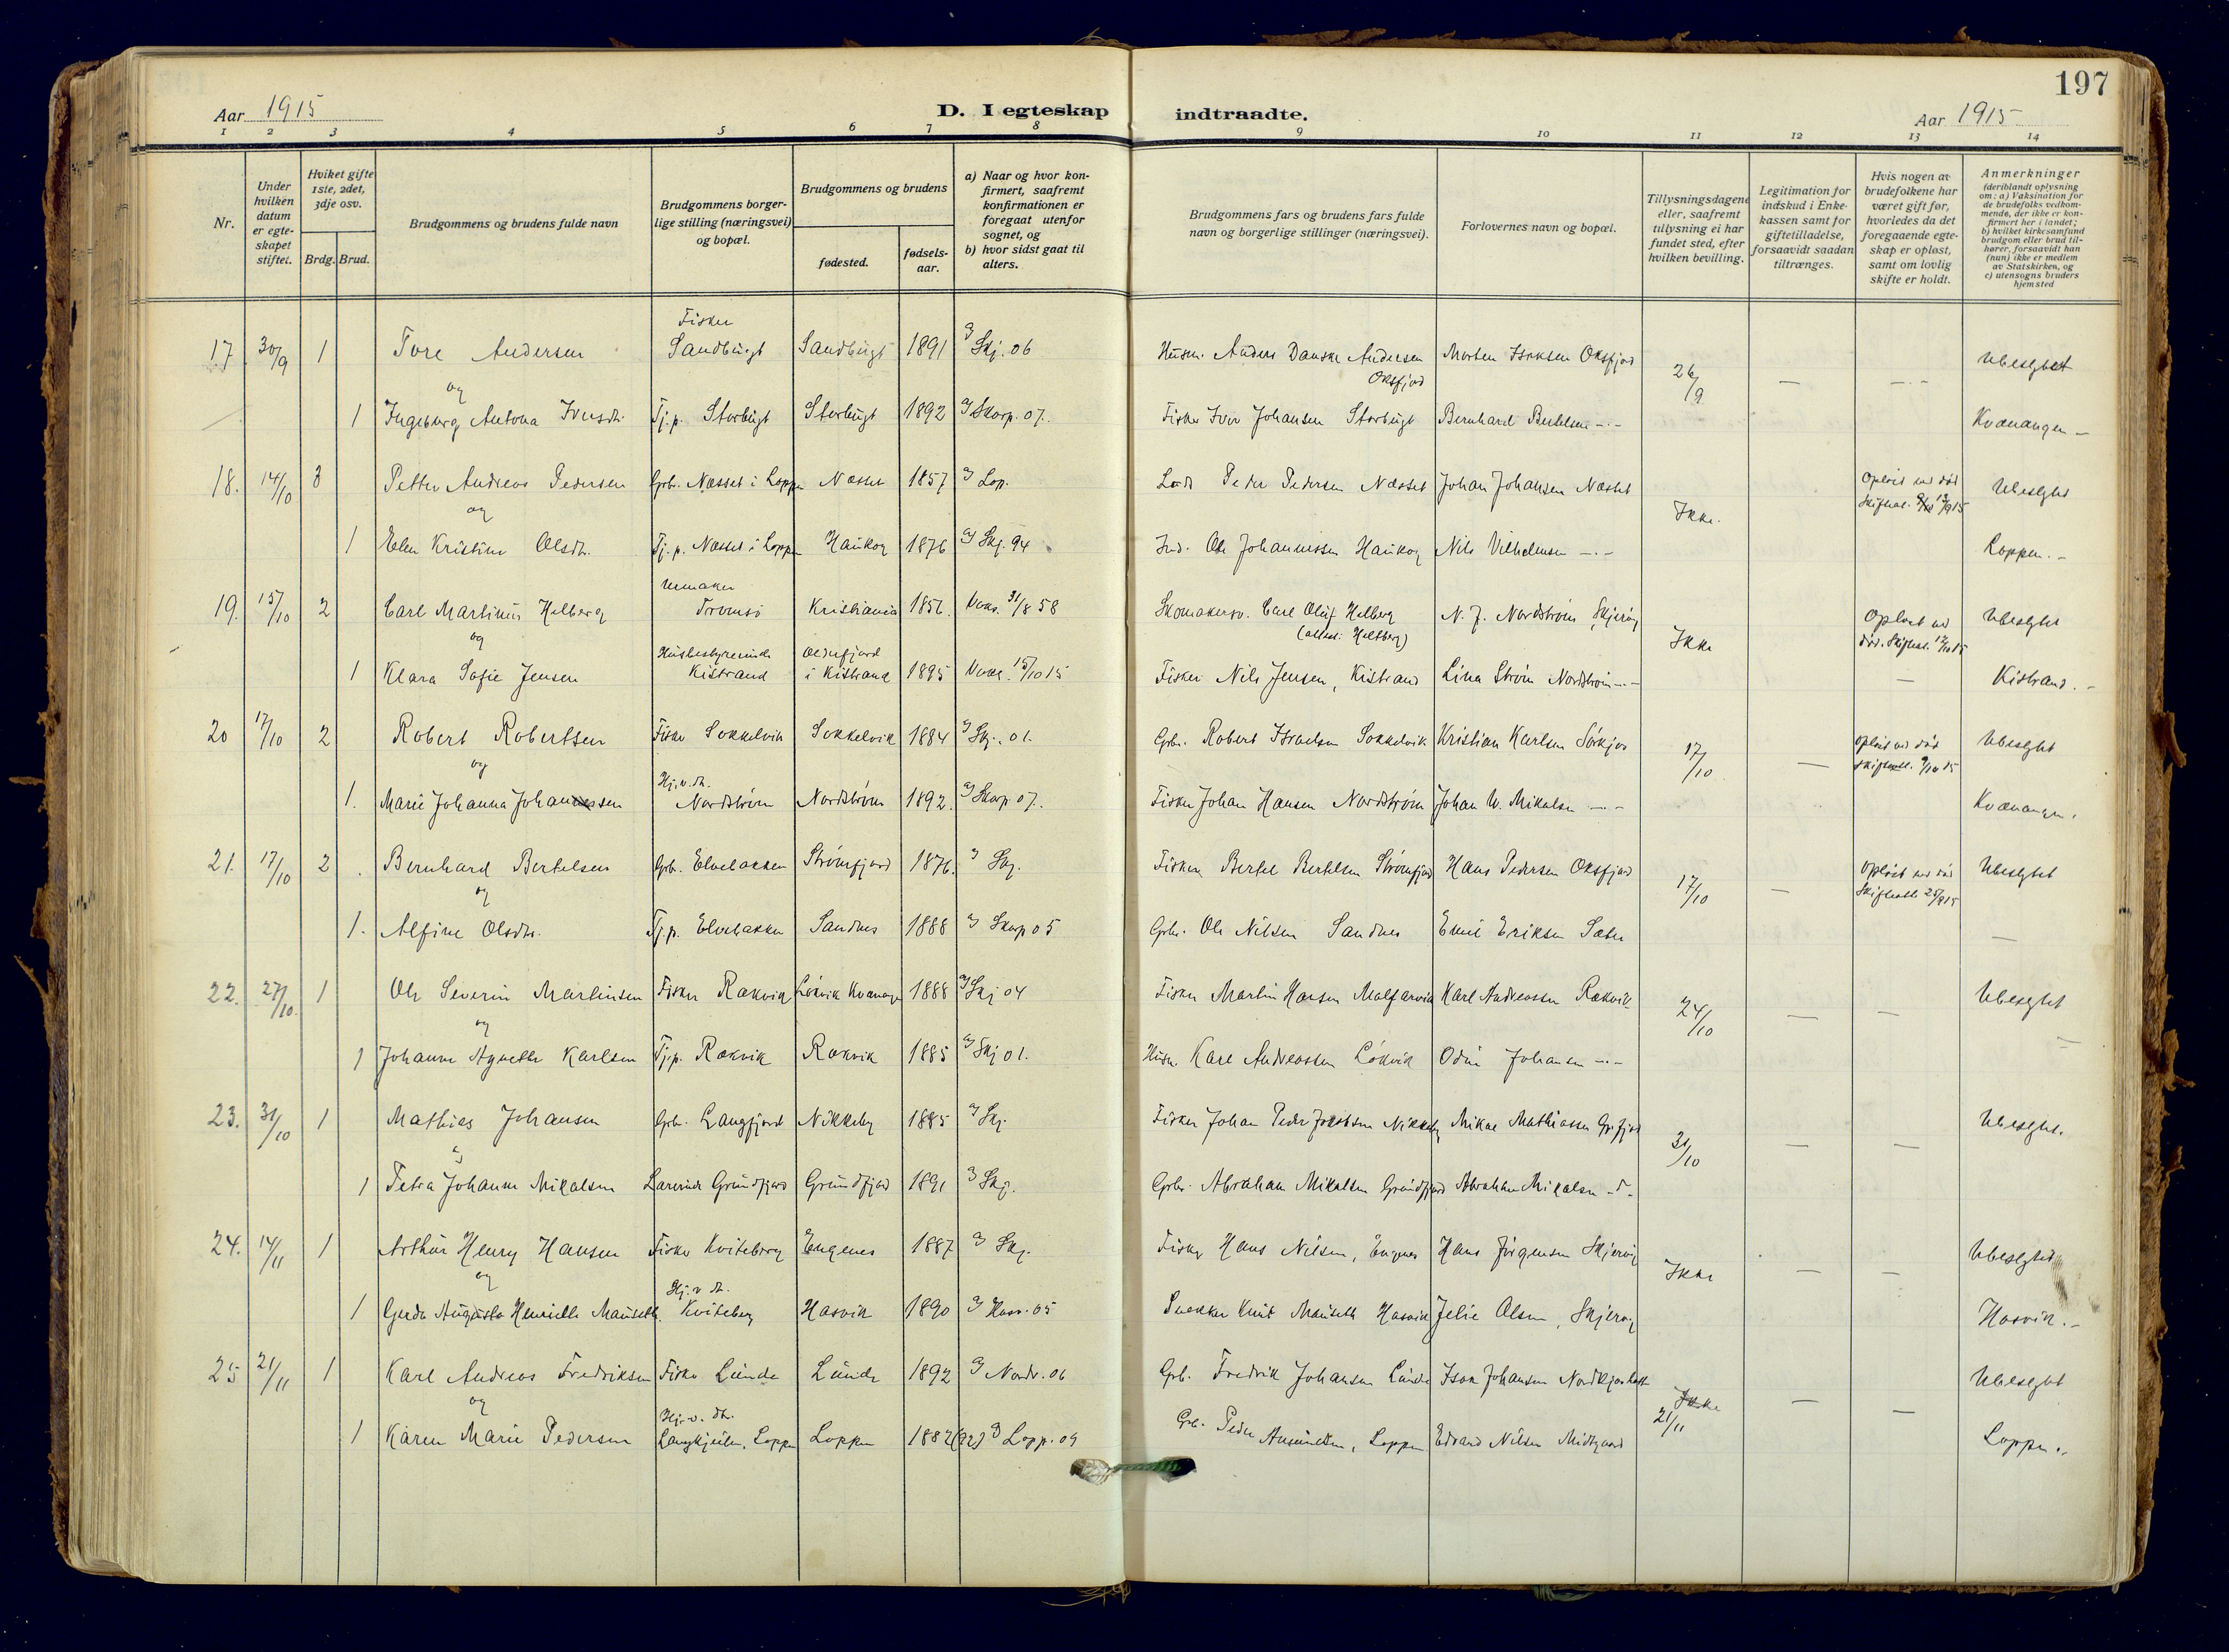 197
Aar 1915
D. I egteskap indtraadte.
Aar 1915
1 2 3 4 5 6 7 8 9 10 11 12 13 14
Nr.
Under hvilken datum er egteskapet stiftet.
Hviket gifte 1ste, 2det, 3dje osv.
Brdg. Brud.
Brudgommens og brudens fulde navn
Brudgommens borgerlige stilling (næringsvei) og bopæl.
Brudgommens og brudens
fødested.
fødselsaar.
a) Naar og hvor konfirmert, saafremt konfirmationen er foregaat utenfor sognet, og
b) hvor sidst gaat til alters.
Brudgommens fars og brudens fars fulde navn og borgerlige stillinger (næringsvei).
Forlovernes navn og bopæl.
Tillysningsdagene eller, saafremt tillysning ei har fundet sted, efter hvilken bevilling.
Legitimation for indskud i Enkekassen samt for giftetilladelse, forsaavidt saadan tiltrænges.
Hvis nogen av brudefolkene har været gift før, hvorledes da det foregaaende egteskap er opløst, samt om lovlig skifte er holdt.
Anmerkninger (deriblandt oplysning om: a) Vaksination for de brudefolks vedkommende, der ikke er konfirmert her i landet; b) hvilket kirkesamfund brudgom eller brud tilhører, forsaavidt han (hun) ikke er medlem av Statskirken, og c) utensogns bruders hjemsted
17 30/9 1 Tore Andersen Fisker Sandbugt Sandbugt 1891 Skj. 06 Husm. Anders Danske Andersen Oksfjord Morten Isaksen Oksfjord 26/9 — — Ubeslgtet
og
1 Ingeborg Antona Iversdtr. Tj.p. Storbugt Storbugt 1892 Skorp. 07. Fisker Iver Johansen Storbugt Bernhard Bertelsen -.- Kvænangen —
18. 14/10 3 Petter Andreas Pedersen Grb. Næsset i Loppen Næsset 1857 Lop. Peder Pedersen Næsset Johan Johansen Næsset Ikke. Opløst ved død Ubeslgtet
og
1 Elen Kristine Olsdtr. Tj.p. Næsset i Loppen Haukøy 1876 Skj. 94 Ind. Ole Johannessen Haukøy Nils Vilhelmsen -.- Loppen. -
19. 15/10 2 Carl Martinus Helberg Urmaker Tromsø Kristiania 1856. Vaks. 31/8 58 Skomakersv. Carl Oluf Helberg (alias: Heltberg) N. J. Nordstrøm Skjervøy Ikke Opløst ved død. Skifteat. 12/10 15 Ubeslgtet
og
1 Klara Sofie Jensen Husbestyrerinde Kistrand Oldefjord i Kistrand 1895 Vaks. 15/10 15 Fisker Nils Jensen, Kistrand Lina Strøm Nordstrøm -.- — Kistrand. -
20 17/10 2 Robert Robertsen Fisker Sokkelvik Sokkelvik 1884 Skj. 01. Grb. Robert Israelsen Sokkelvik Kristian Karlsen Sørkjos 17/10 — Opløst ved død Skifteatt. 9/10 15 Ubeslgtet
og
1. Marie Johanna Johansen Hj.v.dt. Nordstrøm Nordstrøm 1892. Skorp 07. Fisker Johan Hansen Nordstrøm Johan U. Mikalsen -.- Kvænangen.
21. 17/10 2 Bernhard Bertelsen Grb. Elvebakken Strømfjord 1876. Skj. Fisker Bertel Bertelsen Strømfjord Hans Pedersen Oksfjord 17/10 — Opløst ved død Skifteatt. 25/9 15 Ubeslgtet
og
1. Alfine Olsdtr. Tj.p. Elvebakken Sandnes 1888 Skorp 05 Grb. Ole Nilsen Sandnes Emil Eriksen Sæter —
22. 27/10. 1 Ole Severin Martinsen Fisker Rakvik Løkvik Kvænangen 1888 Skj 04 Fisker Martin Hansen Malfarvik Karl Andreassen Rakvik 24/10 — — Ubeslgtet
og
1 Johanne Agnethe Karlsen Tj.p. Rakvik Rakvik 1885 Skj 01. Husm. Karl Andreassen Løkvik Odin Johansen -.- —
23. 31/10 1 Mathias Johansen Grb. Langfjord Nikkeby 1885 Skj. Fisker Johan Peder Nikkeby Mikal Mathiassen 31/10 — — Ubeslgtet.
og
1 Petra Johanne Mikalsen Lærerinde Grundfjord Grundfjord 1891 Skj. Grb. Abraham Mikalsen Grundfjord Abraham Mikalsen -.-
24. 14/11 1 Arthur Henry Hansen Fisker Kviteberg Engenes 1887 Skj. Fisker Hans Nilsen, Engenes Hans Jørgensen Skjervøy Ikke — — Ubeslgtet
og
1 Gerda Augusta Henriette Mauseth. Hj.v.dt. Kviteberg Hasvik 1890 Hasv. 05 Snekker Knut Mauseth Hasvik Jelie Olsen, Skjervøy Hasvik. -
25 21/11 1 Karl Andreas Fredriksen Fisker Lunde Lunde 1892 Nordr. 06 Grb. Fredrik Johansen Lunde Isak Johansen Ikke 21/11 — — Ubeslgtet
og
1 Karen Marie Pedersen Hj.v.dt. Langkjeilen, Loppen Loppen 1882 (92) Lopp. 09 Grb. Peder Amundsen, Loppen Edvard Nilsen Midtgaard Loppen.